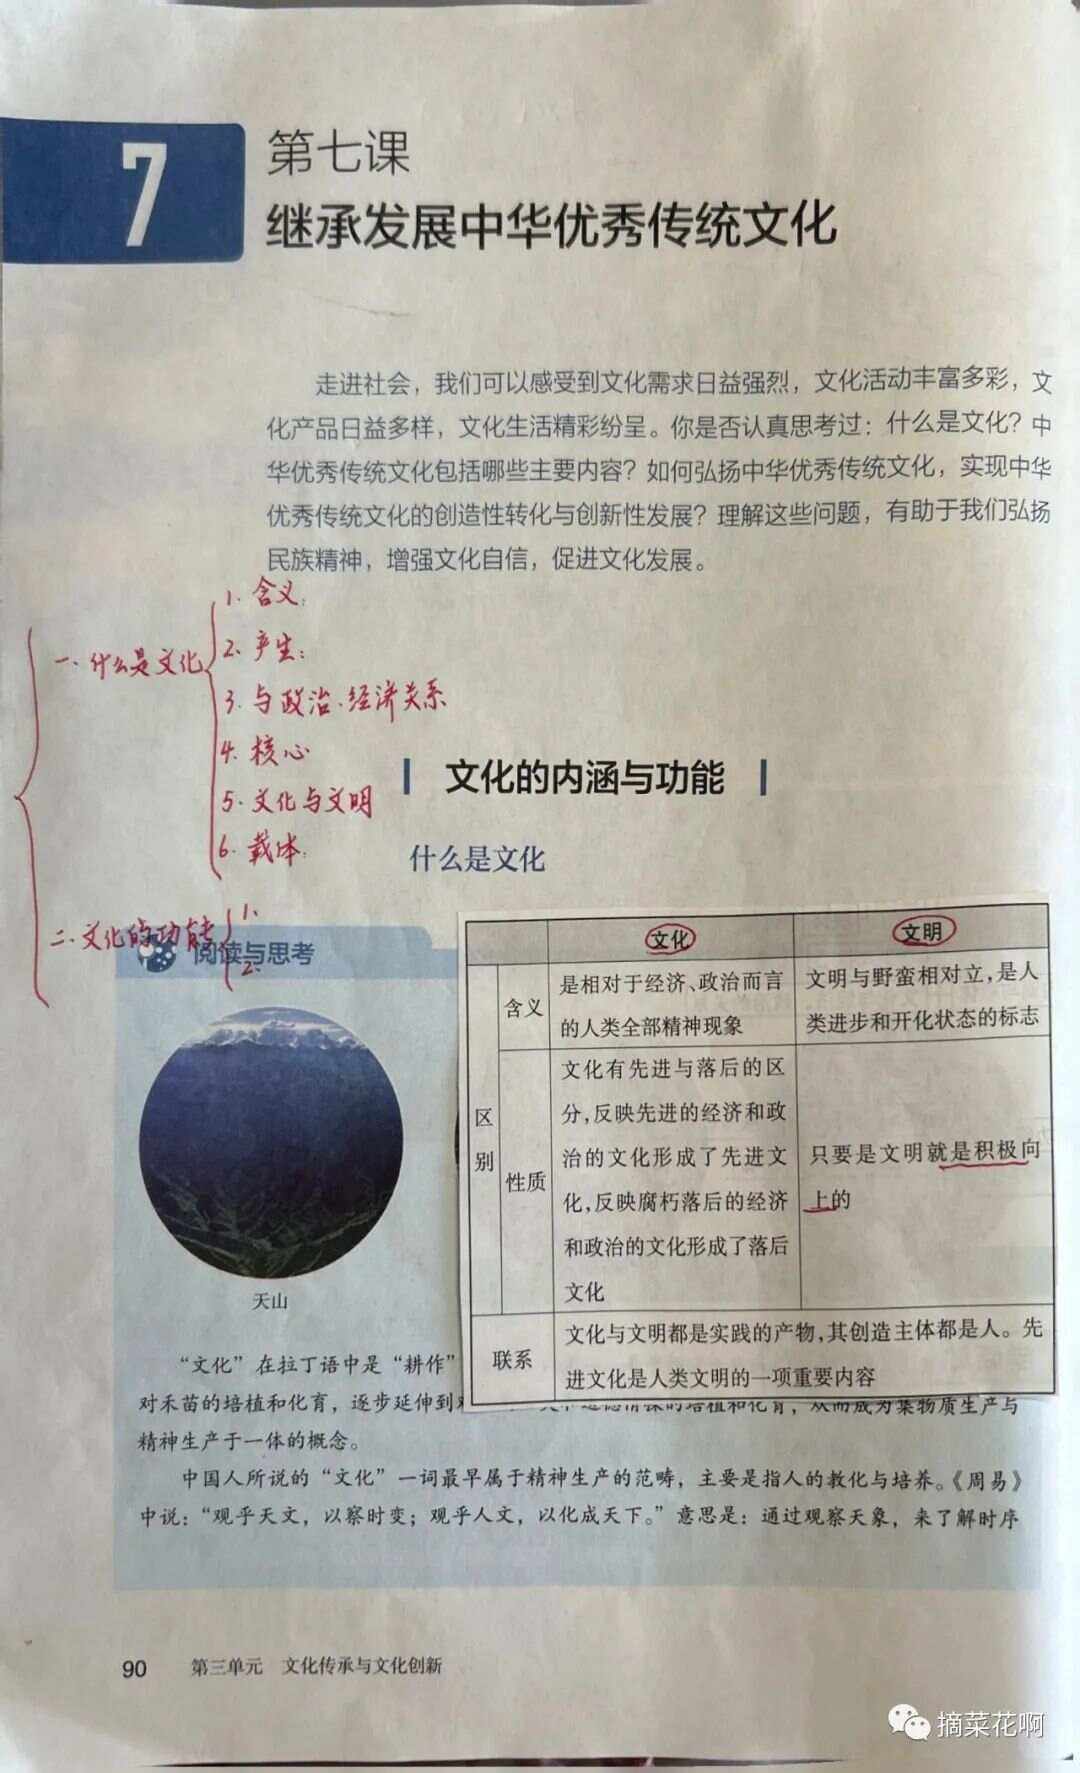 7
第七课
继承发展中华优秀传统文化
走进社会，我们可以感受到文化需求日益强烈，文化活动丰富多彩，文
化产品日益多样，文化生活精彩纷呈。你是否认真思考过：什么是文化？中
华优秀传统文化包括哪些主要内容？如何弘扬中华优秀传统文化，实现中华
优秀传统文化的创造性转化与创新性发展？理解这些问题，有助于我们弘扬
民族精神，增强文化自信，促进文化发展。
一、什么是文化
1. 含义：
2. 产生：
3. 与政治、经济关系
4. 核心
5. 文化与文明
6. 载体：
二、文化的功能
1.
2.
文化的内涵与功能
什么是文化
阅读与思考
天山
文化 文明
区别
含义
是相对于经济、政治而言
的人类全部精神现象
文明与野蛮相对立，是人
类进步和开化状态的标志
性质
文化有先进与落后的区
分，反映先进的经济和政
治的文化形成了先进文
化，反映腐朽落后的经济
和政治的文化形成了落后
文化
只要是文明就是积极向
上的
联系
文化与文明都是实践的产物，其创造主体都是人。先
进文化是人类文明的一项重要内容
“文化”在拉丁语中是“耕作”
对禾苗的培植和化育，逐步延伸到 的培植和化育，从而成为集物质生产与
精神生产于一体的概念。
中国人所说的“文化”一词最早属于精神生产的范畴，主要是指人的教化与培养。《周易》
中说：“观乎天文，以察时变；观乎人文，以化成天下。”意思是：通过观察天象，来了解时序
90 第三单元 文化传承与文化创新
摘菜花啊